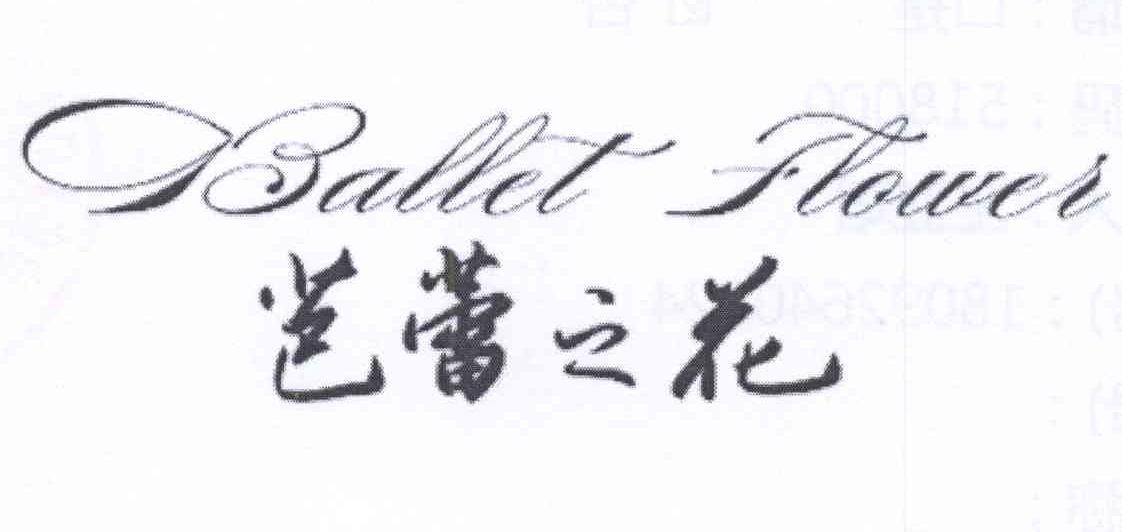 Ballet Flower
芭蕾之花